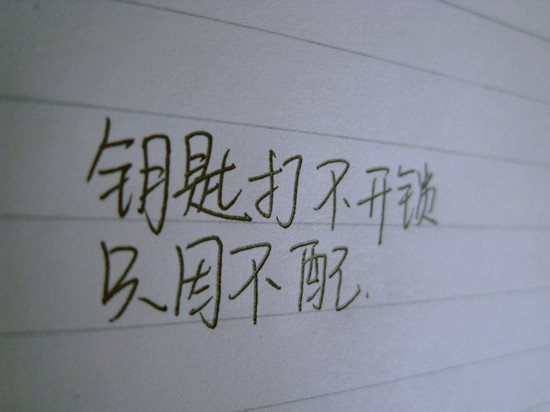 钥匙打不开锁
只因不配.